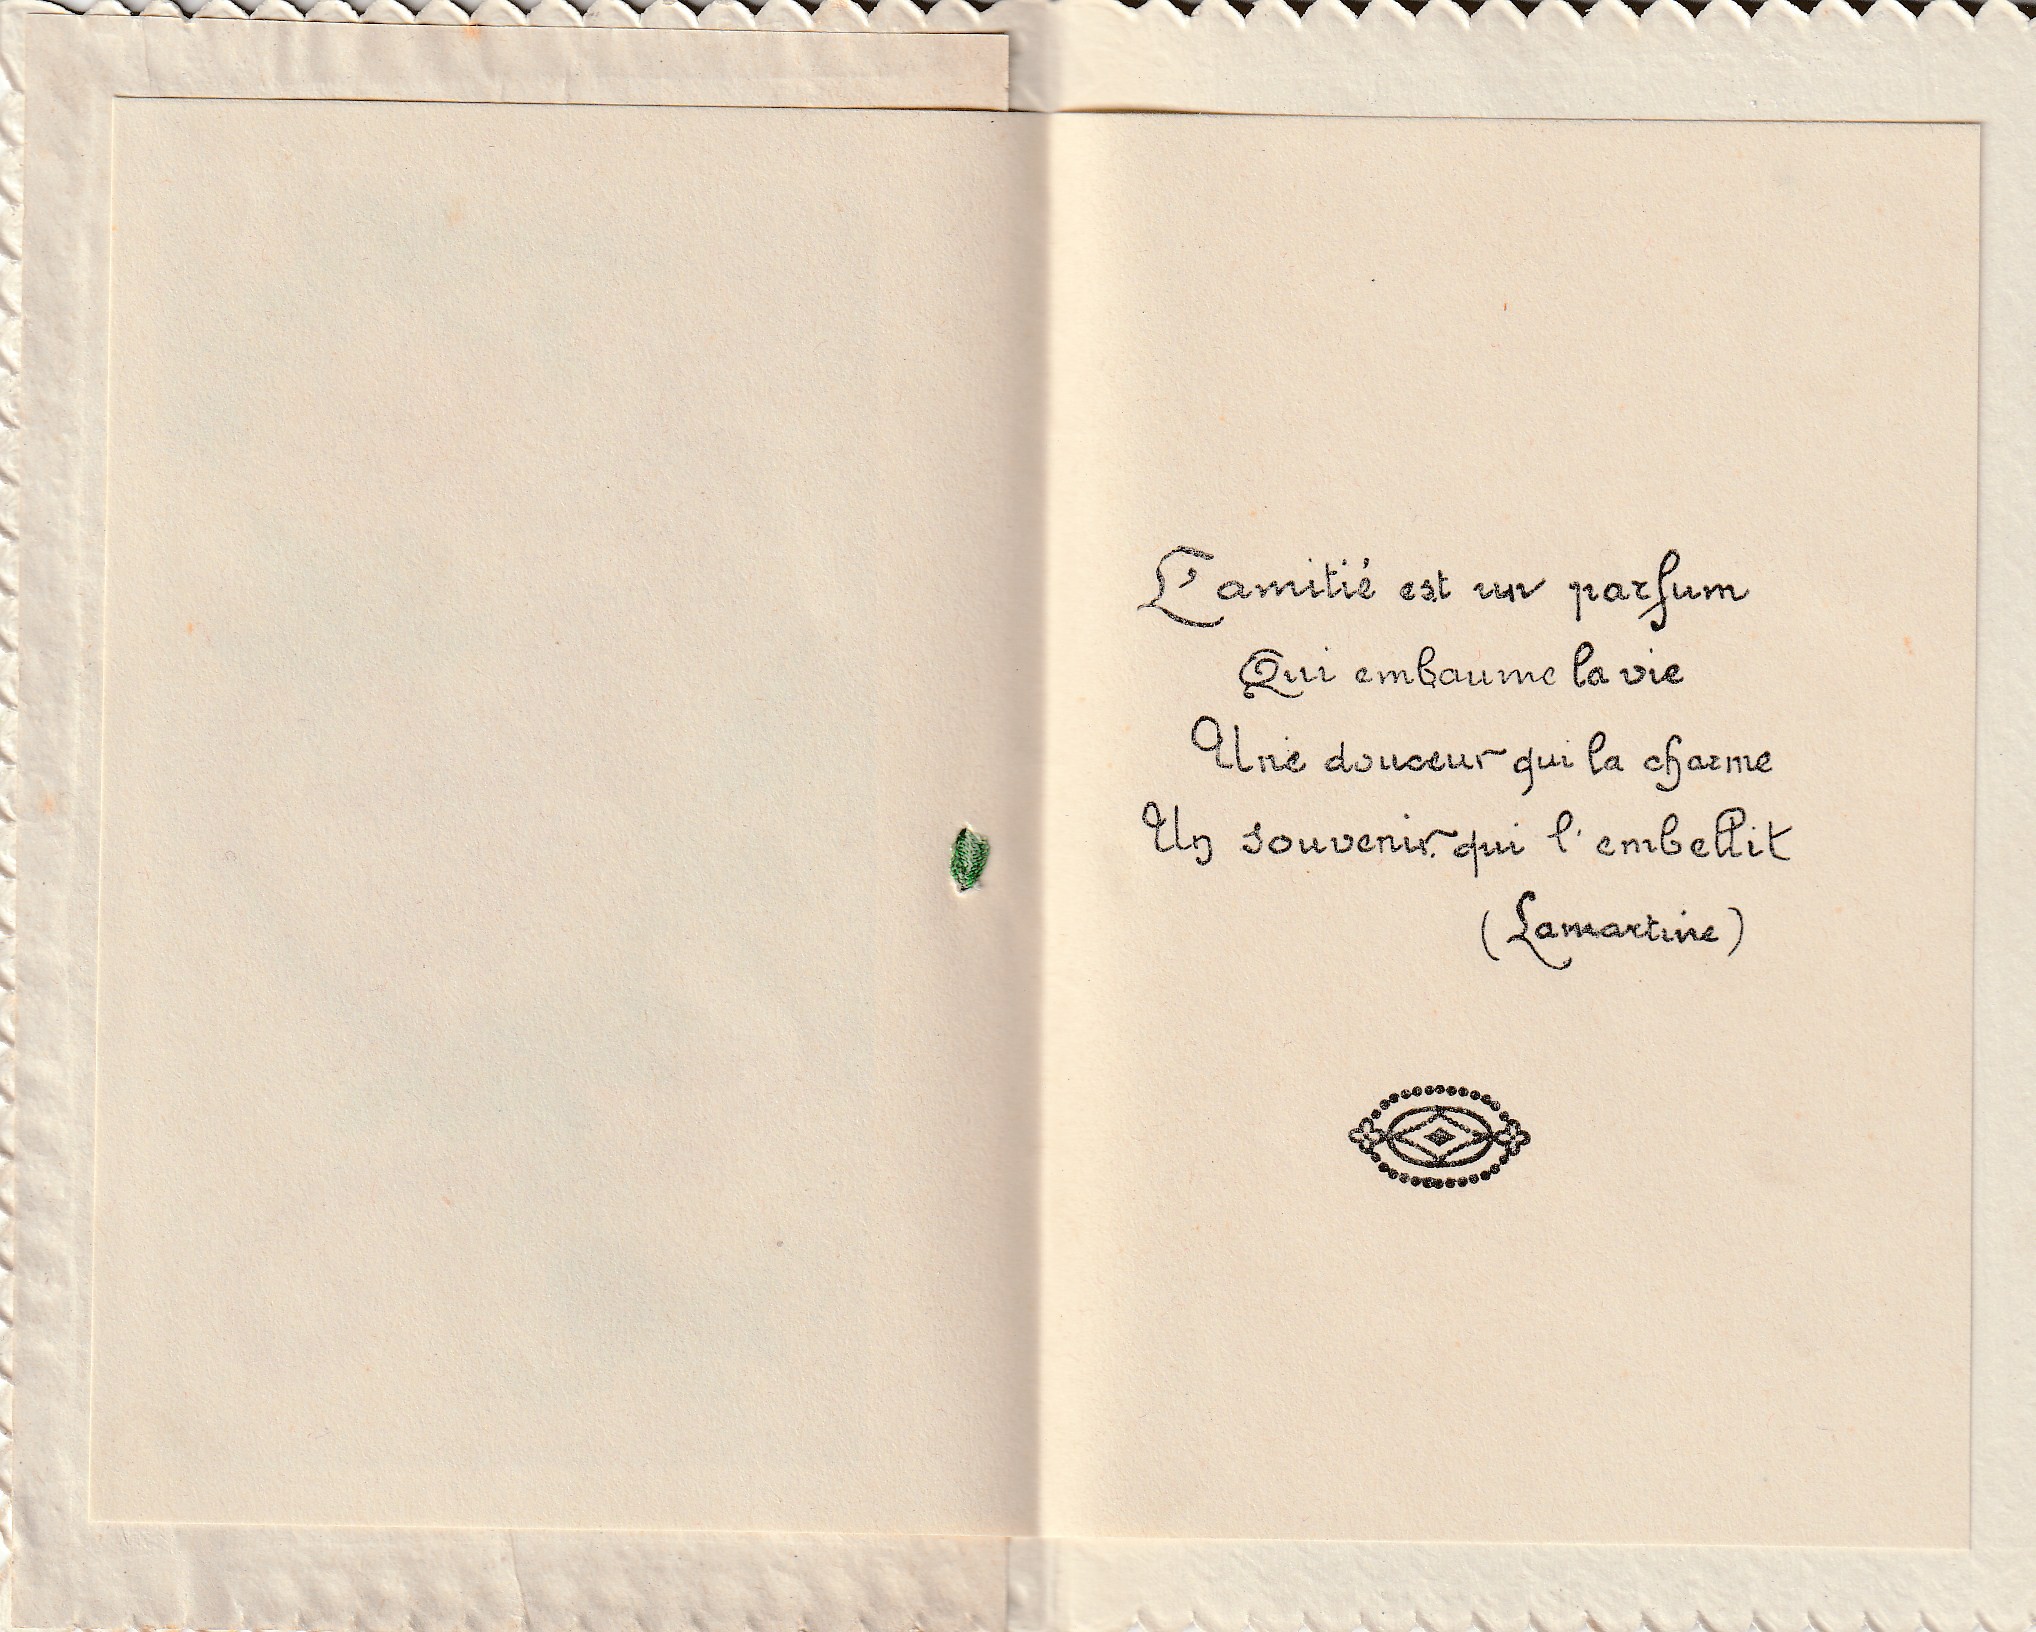 L'amitié est un parfum
Qui embaume la vie
Une douceur qui la charme
Un souvenir qui l'embellit
(Lamartine)